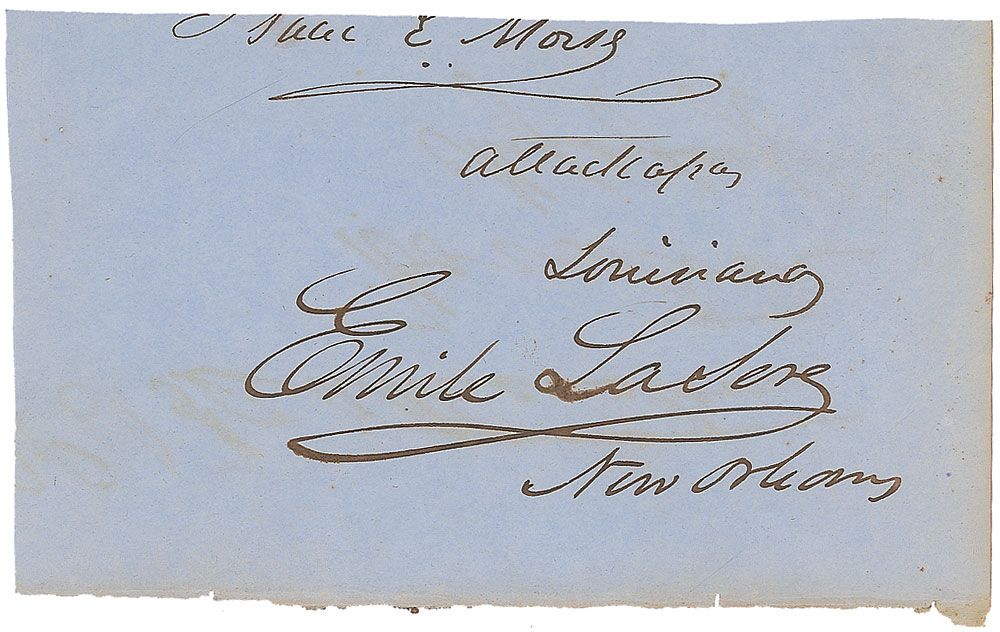 Isaac E Morse
Attackapas
Louisiana
Emile LaSere
New Orleans